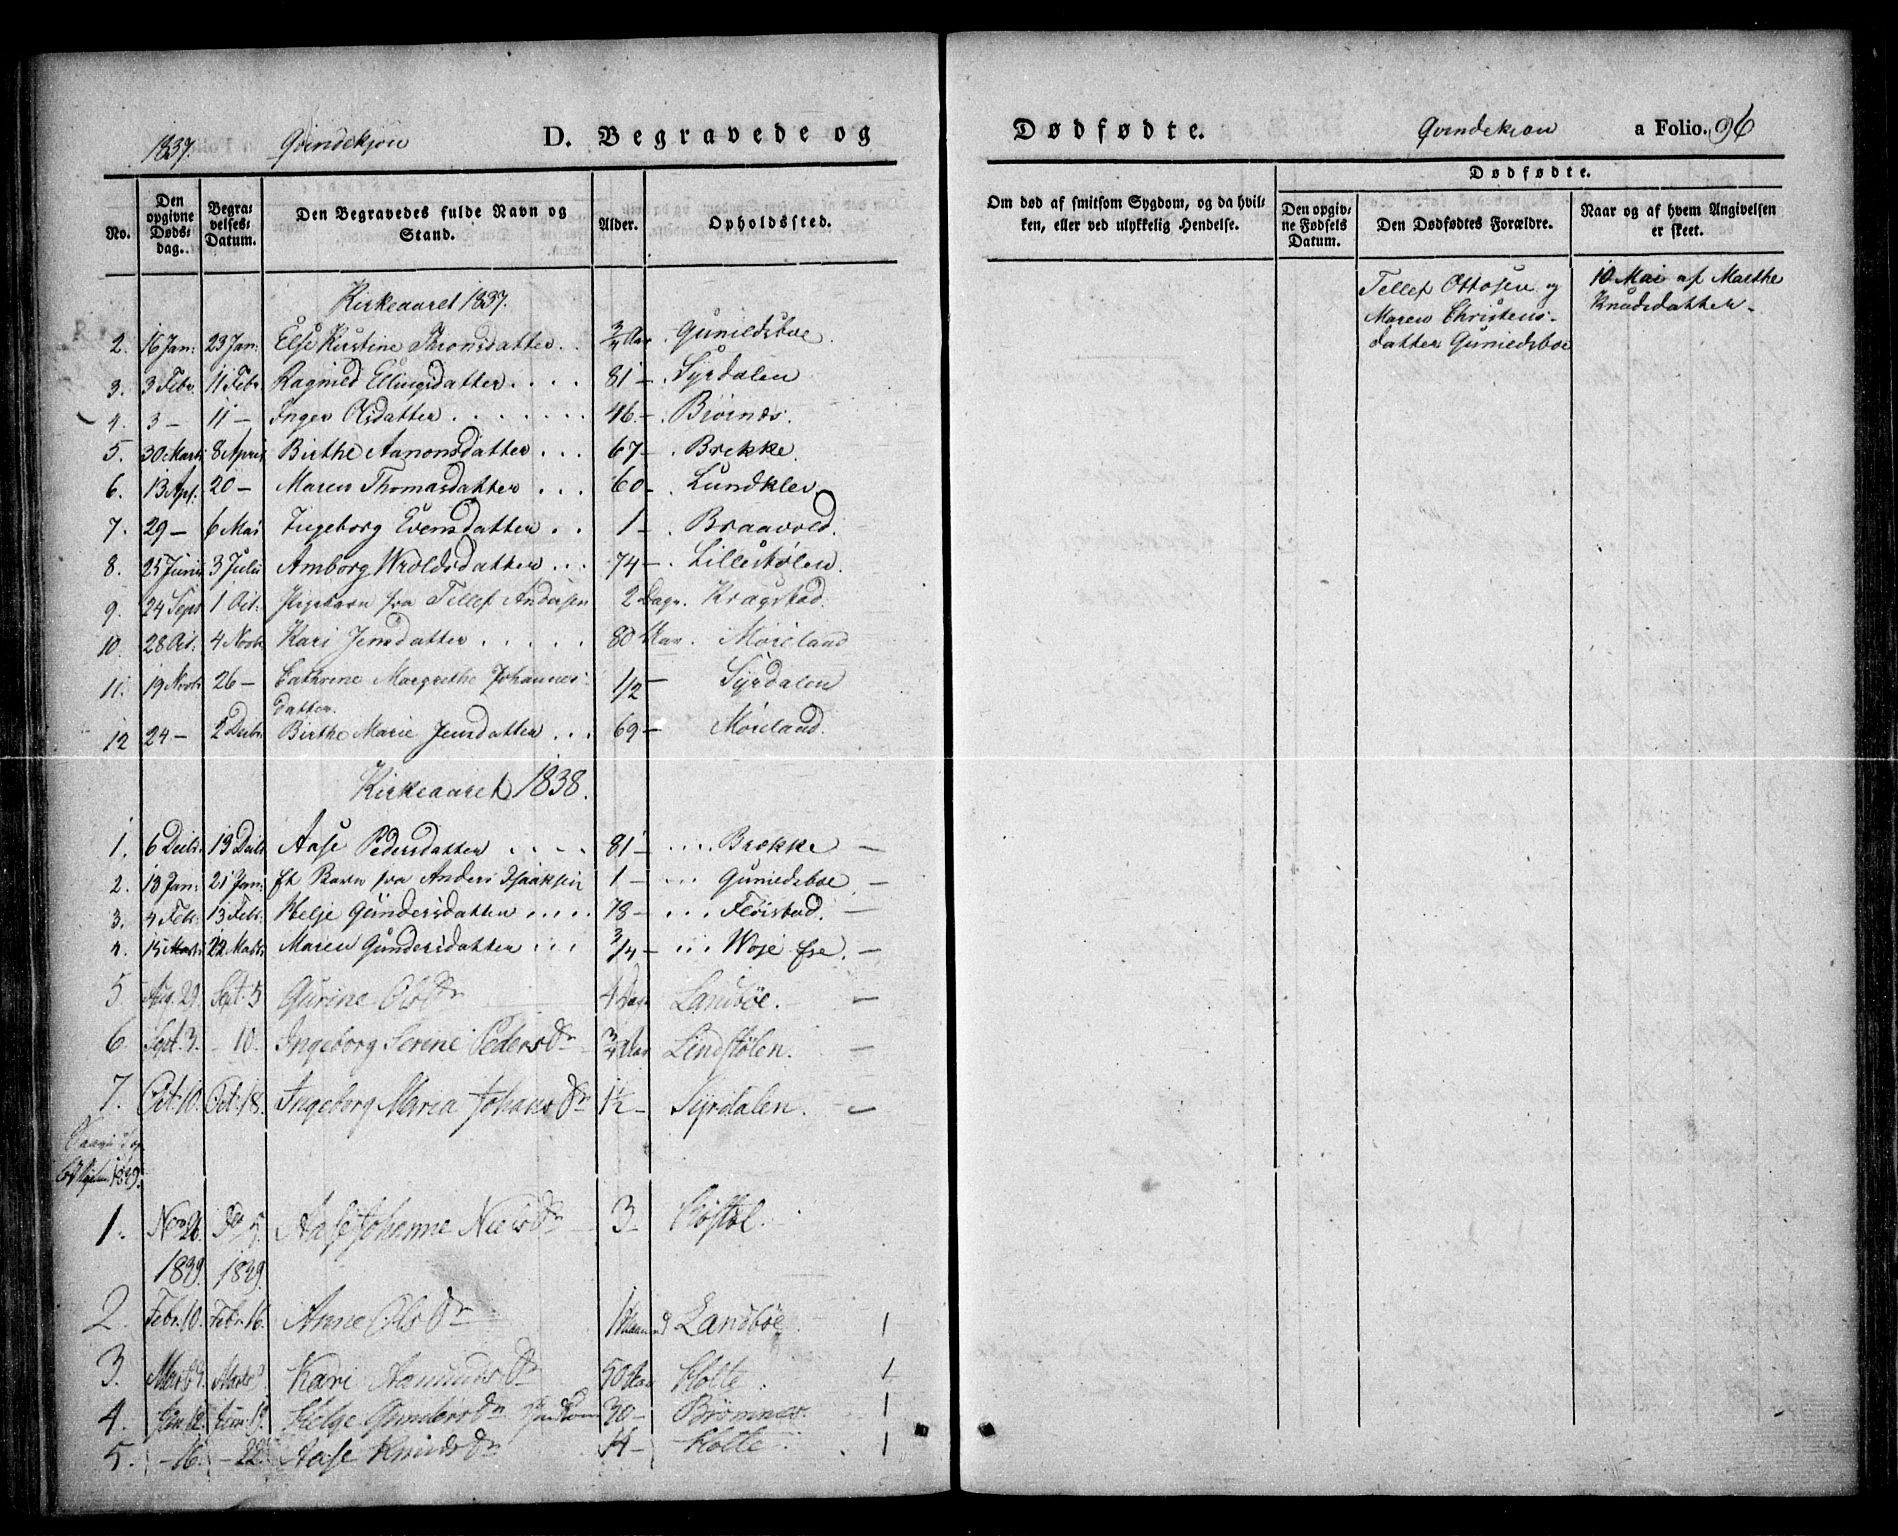 1837. Qvindekjøn D. Begravede og
No.
Den opgivne Døds-dag.
Begra-velses-Datum.
Den Begravedes fulde Navn og Stand.
Alder.
Opholdssted.
Kirkeaaret 1837.
2. 16 Jan: 23 Jan: Else Kirstine Thronsdatter. . 3/4 Aar Gunieldsboe.
3. 3 Febr. 11 Febr Ragnild Ellingsdatter. . . . 81 – . Syrdalen
4. 3 – 11 – Inger Olsdatter . . . . . . . 46. – . Biørnes.
5. 30 Marts 8 April Birthe Aanonsdatter . . . 67 – . Brekke.
6. 13 Apr. 20 – Maren Thomasdatter . . . 60 – . Lundklev
7. 29 – 6 Mai Ingeborg Evensdatter . . 1 – . Braavold.
8. 25 Junii 3 Julii Amborg Wroldsdatter . . . 74 – . Lillestølen.
9. 24 Sept 1 Oct. Pigebarn fra Tellef Andersen 2 Dage. Kragstad.
10. 28 Oct: 4 Novbr Kari Jensdatter . . . . . 80 Aar. Møreland
11. 19 Novbr 26 – Cathrine Margrethe Johannes-
datter. 1/2 – Syrdalen
12 24 – 2 Decbr. Birthe Marie Jensdatter . . . 69 – Møreland.
Kirkeaaret 1838.
1. 6 Decbr. 13 Decbr Aase Pedersdatter . . . . 81 – . . . . Brekke –
2. 13 Jan: 21 Jan: et Barn fra Anders Isaaksen 1 – . . . Gunieldsboe. –
3. 4 Febr. 13 Febr. Helje Gundersdatter . . . . . 78 – . . . Fløistad. –
4. 15 Marts 22 Marts Maren Gundersdatter . . . 3/4 – . . . Woje –
5 Aug. 29. Sept. 5 Gurine Olsdr 4 Dage Landbøe. –
6 Sept. 3. – 10. Ingeborg Serine Pedersdr 3/4 Aar Lindstølen. –
7. Oct. 10. Oct. 18. Ingeborg Maria Johansdr 1½ – Syrdalen. –
1839.
1. Nov 26. Dec 5. Aase Johanne Nielsdr 3 – Røstøl.
1839. 1839.
2 Febr. 10. Febr. 16. Anne Olsdr 1 Maaned Landbøe. 1
3. Kari Aamundsdr 50 Aar Holte. 1
4. Jun 12. Jun. 19. Helge Gundersdr 30 – Brømnes. 1
5. – 16. – 22. Aase Knudsdr 14 – Holte. 1
Dødfødte. Qvindekiøn a Folio. 96
Om død af smitsom Sygdom, og da hvil-ken, eller ved ulykkelig Hendelse.
Dødfødte.
Den opgiv-ne Fødsels Datum.
Den Dødfødtes Forældre.
Naar og af hvem Angivelsen er skeet.
Tellef Ottosen og
Maren Christens-
datter Gunieldsboe
10 Mai af Marthe
Knudsdatter.